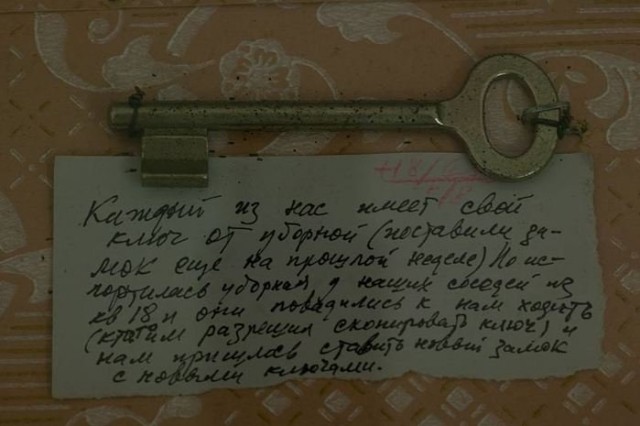 Каждый из нас имеет свой
ключ от уборной (поставили за-
мок еще на прошлой неделе) Но ис-
портилась уборная у наших соседей из
кв 18 и они повадились к нам ходить
(кто им разрешил скопировать ключ) и
нам пришлось ставить новый замок
с новыми ключами.